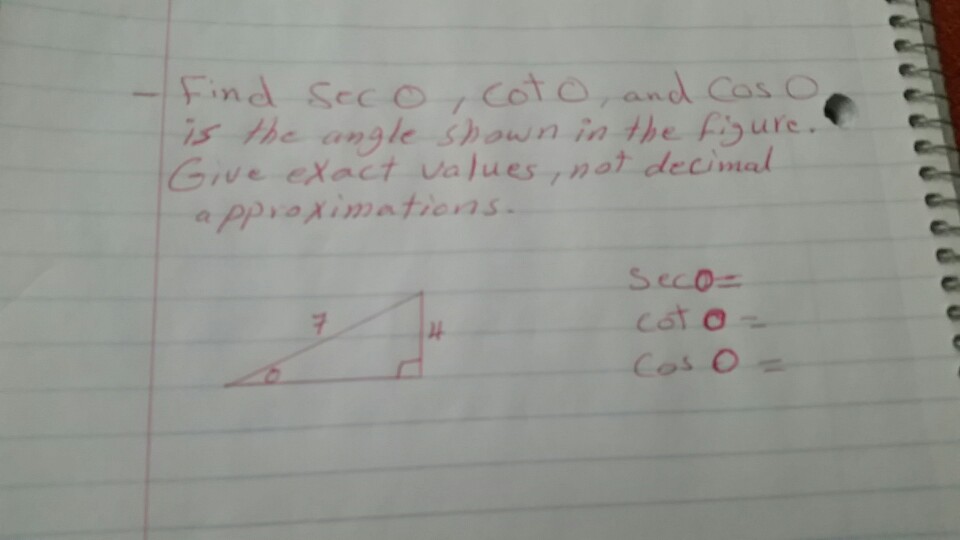 - Find Sec O, Cot O, and Cos O
is the angle shown in the figure.
Give exact values, not decimal
approximations.
Sec O =
7
4
cot O =
O
Cos O =